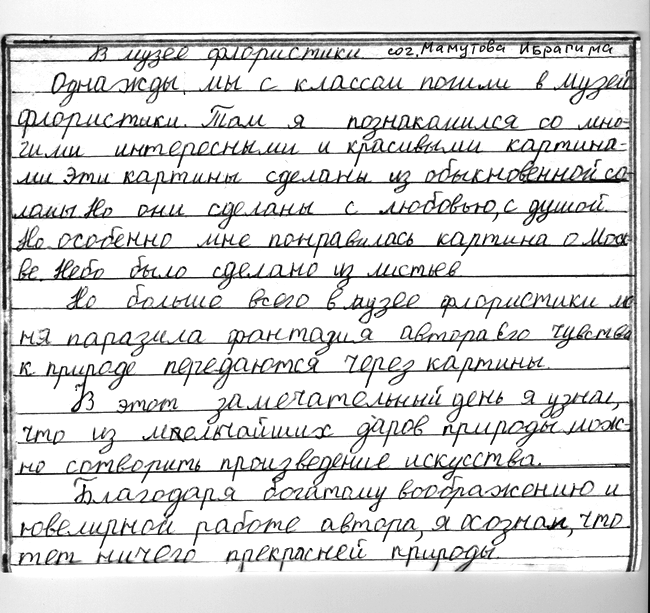 В музее флористики. соч. Мамутова Ибрагима
Однажды, мы с классом пошли в музей
флористики. Там я познакамился со мно-
гими интересными и красивыми картина-
ми Эти картины сделаны из обыкновенной со-
ломы Но они сделаны с любовью, с душой.
Но особенно мне понравилась картина о Моск-
ве. Небо было сделано из листьев
Но больше всего в музее флористики ме
ня паразила фантазия автора Его чувства
к природе передаются через картины.
В этот замечательный день я узнал,
что из мельчайших даров природы мож-
но сотворить произведение искусства.
Благодаря богатому воображению и
ювелирной работе автора, я осознал, что
нет ничего прекрасней природы